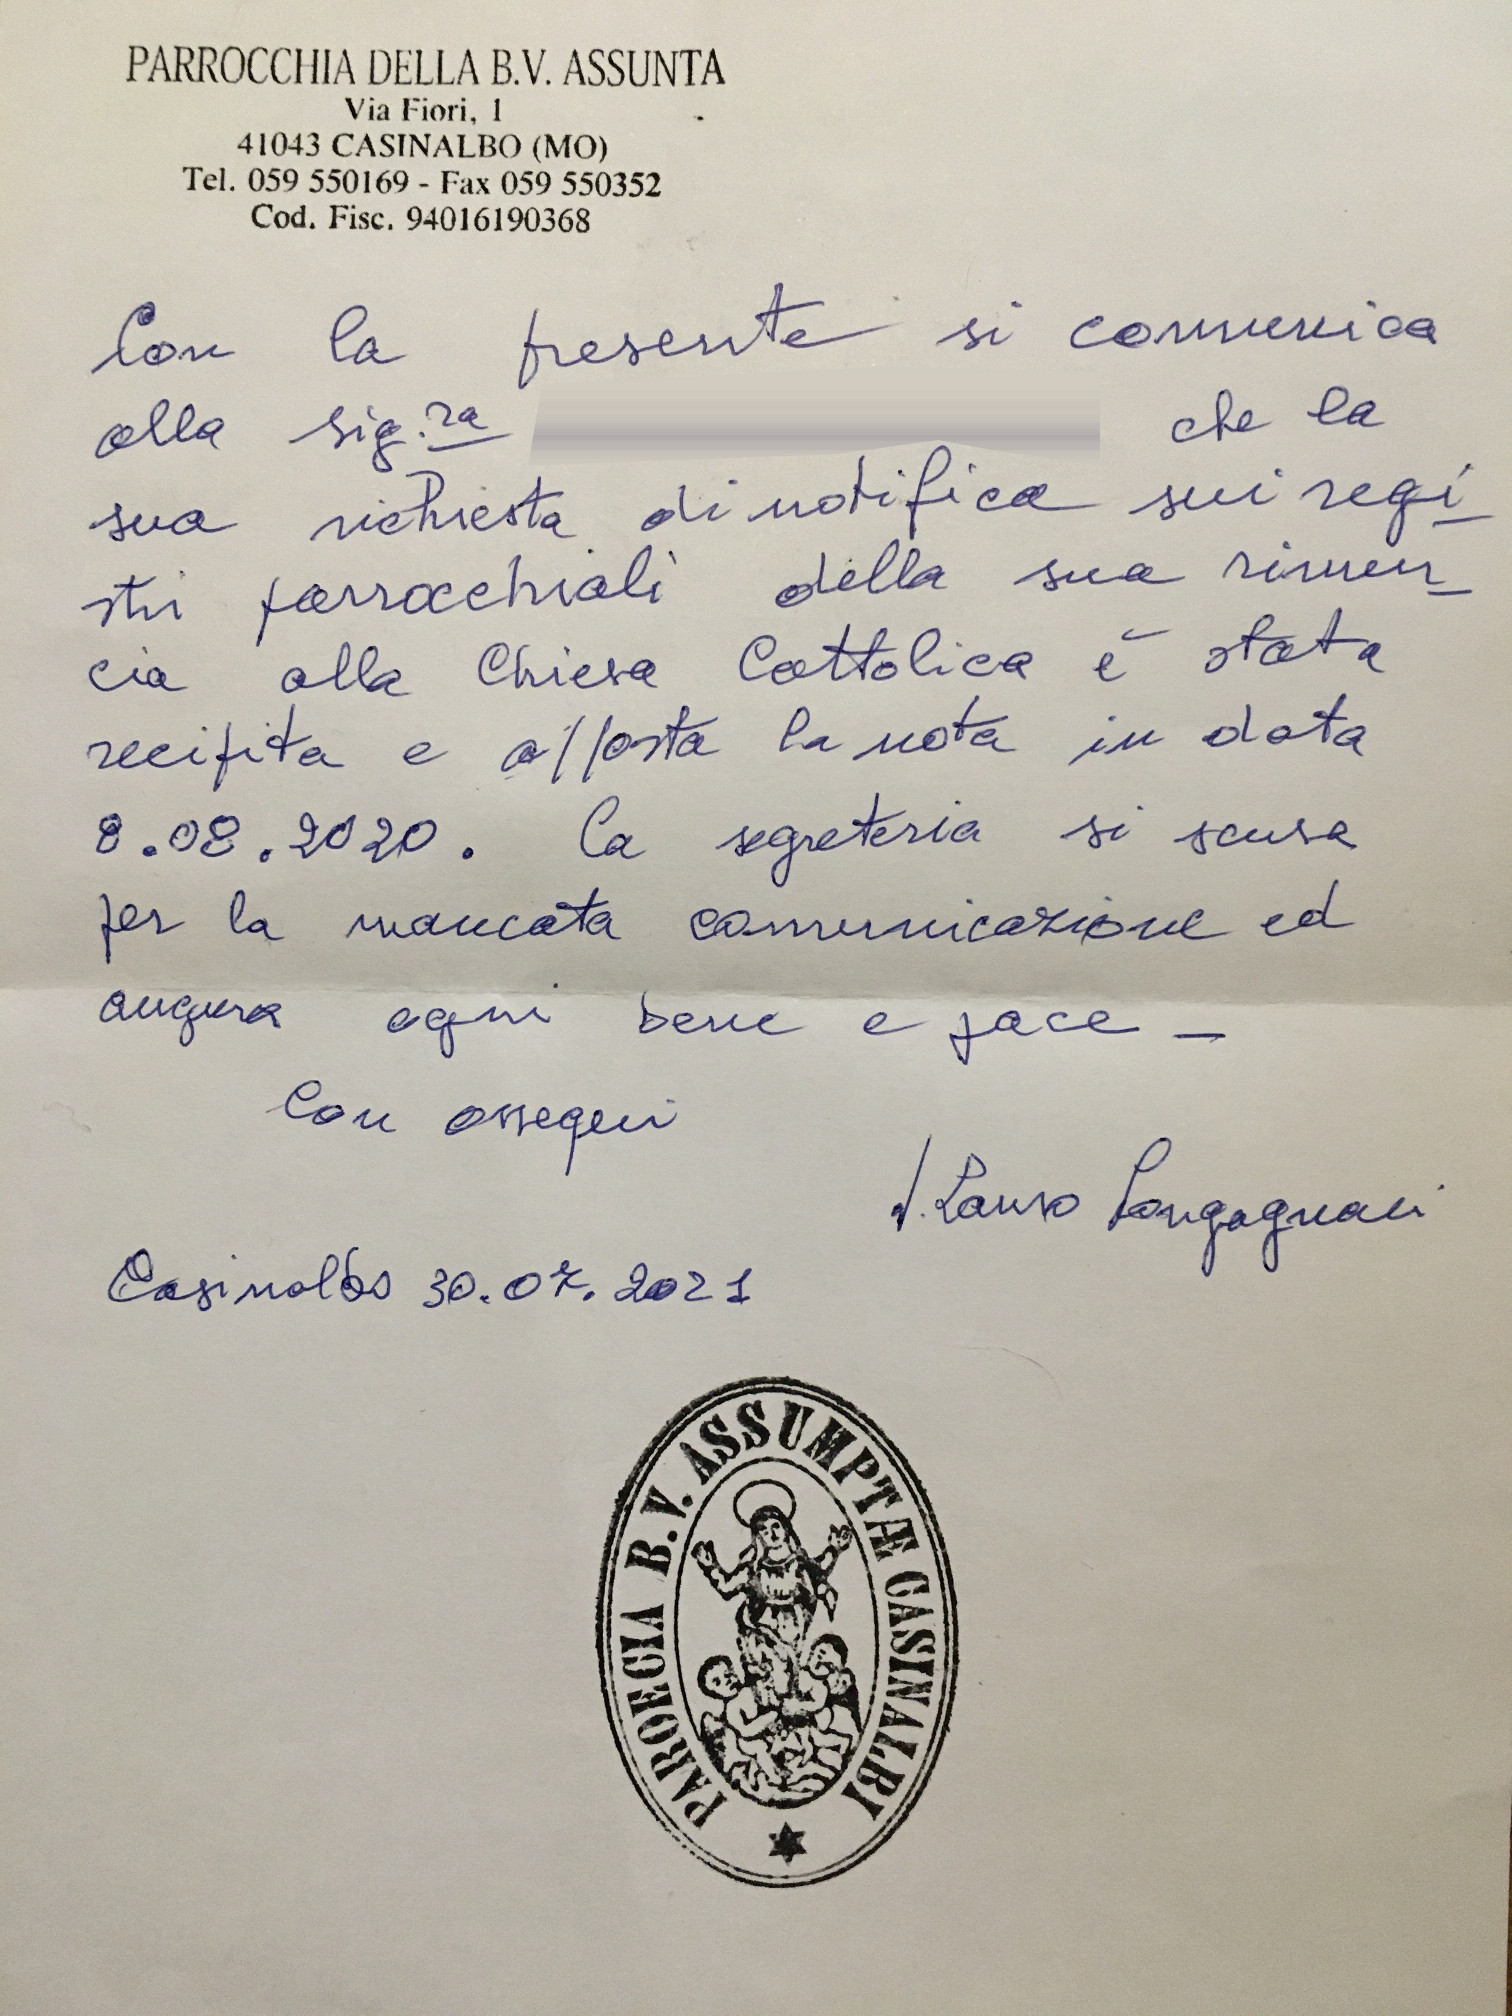 PARROCCHIA DELLA B.V. ASSUNTA
Via Fiori, 1
41043 CASINALBO (MO)
Tel. 059 550169 - Fax 059 550352
Cod. Fisc. 94016190368
Con la presente si comunica
alla sig.ra che la
sua richiesta di notifica sui regi_
stri parrocchiali della sua rinun_
cia alla Chiesa Cattolica è stata
recepita e apposta la nota in data
8.08.2020. La segreteria si scusa
per la mancata comunicazione ed
augura ogni bene e pace _
Con ossequi
d. Lauro
Casinalbo 30.07.2021
PAROECIA B.V. ASSUMPTÆ CASINALBI